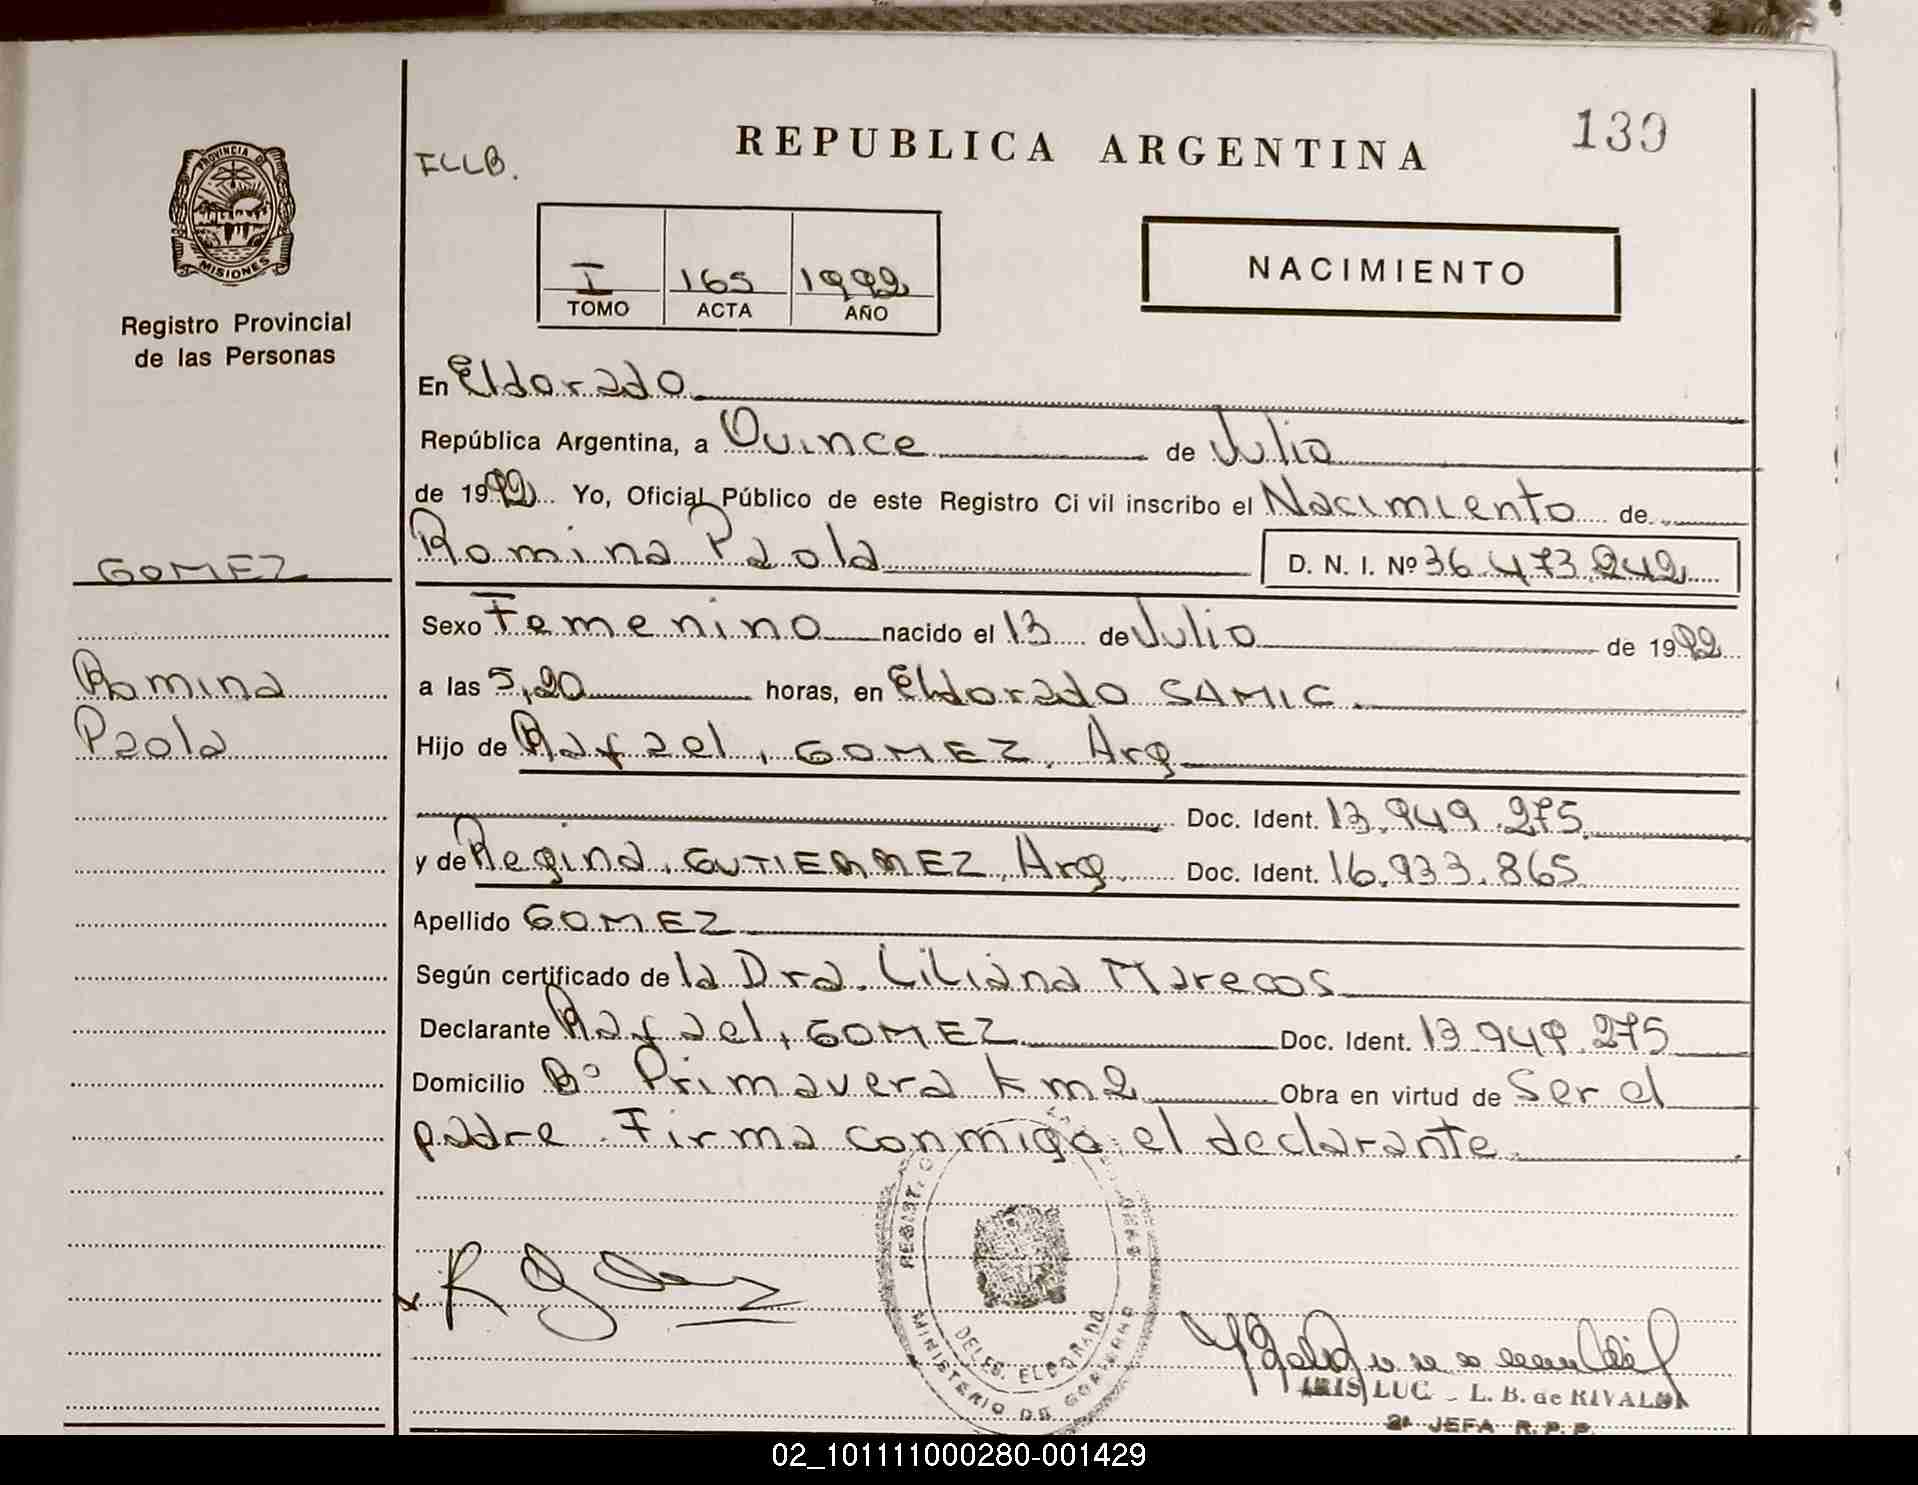 139
REPUBLICA ARGENTINA
ILLB.
PROVINCIA DE
MISIONES
Registro Provincial
de las Personas
I 165 1992
TOMO ACTA AÑO
NACIMIENTO
En Eldorado
República Argentina, a Quince de Julio
de 1992 Yo, Oficial Público de este Registro Civil inscribo el Nacimiento de
GOMEZ
Romina Paola D. N. I. Nº 36.473.242
Sexo Femenino nacido el 13 de Julio de 1992
Romina
Paola
a las 5,20 horas, en Eldorado SAMIC.
Hijo de Rafael, GOMEZ, Arg
Doc. Ident. 13.949.275
y de Regina, GUTIERREZ, Arg. Doc. Ident. 16.933.865
Apellido GOMEZ
Según certificado de la Dra. Liliana Marecos
Declarante Rafael, GOMEZ Doc. Ident. 13.949.275
Domicilio Bº Primavera km2 Obra en virtud de Ser el
padre. Firma conmigo el declarante.
MINISTERIO DE GOBIERNO
DELEG. ELDORADO
L. B. de RIVALDI
2ª JEFA R.P.P.
02_101111000280-001429